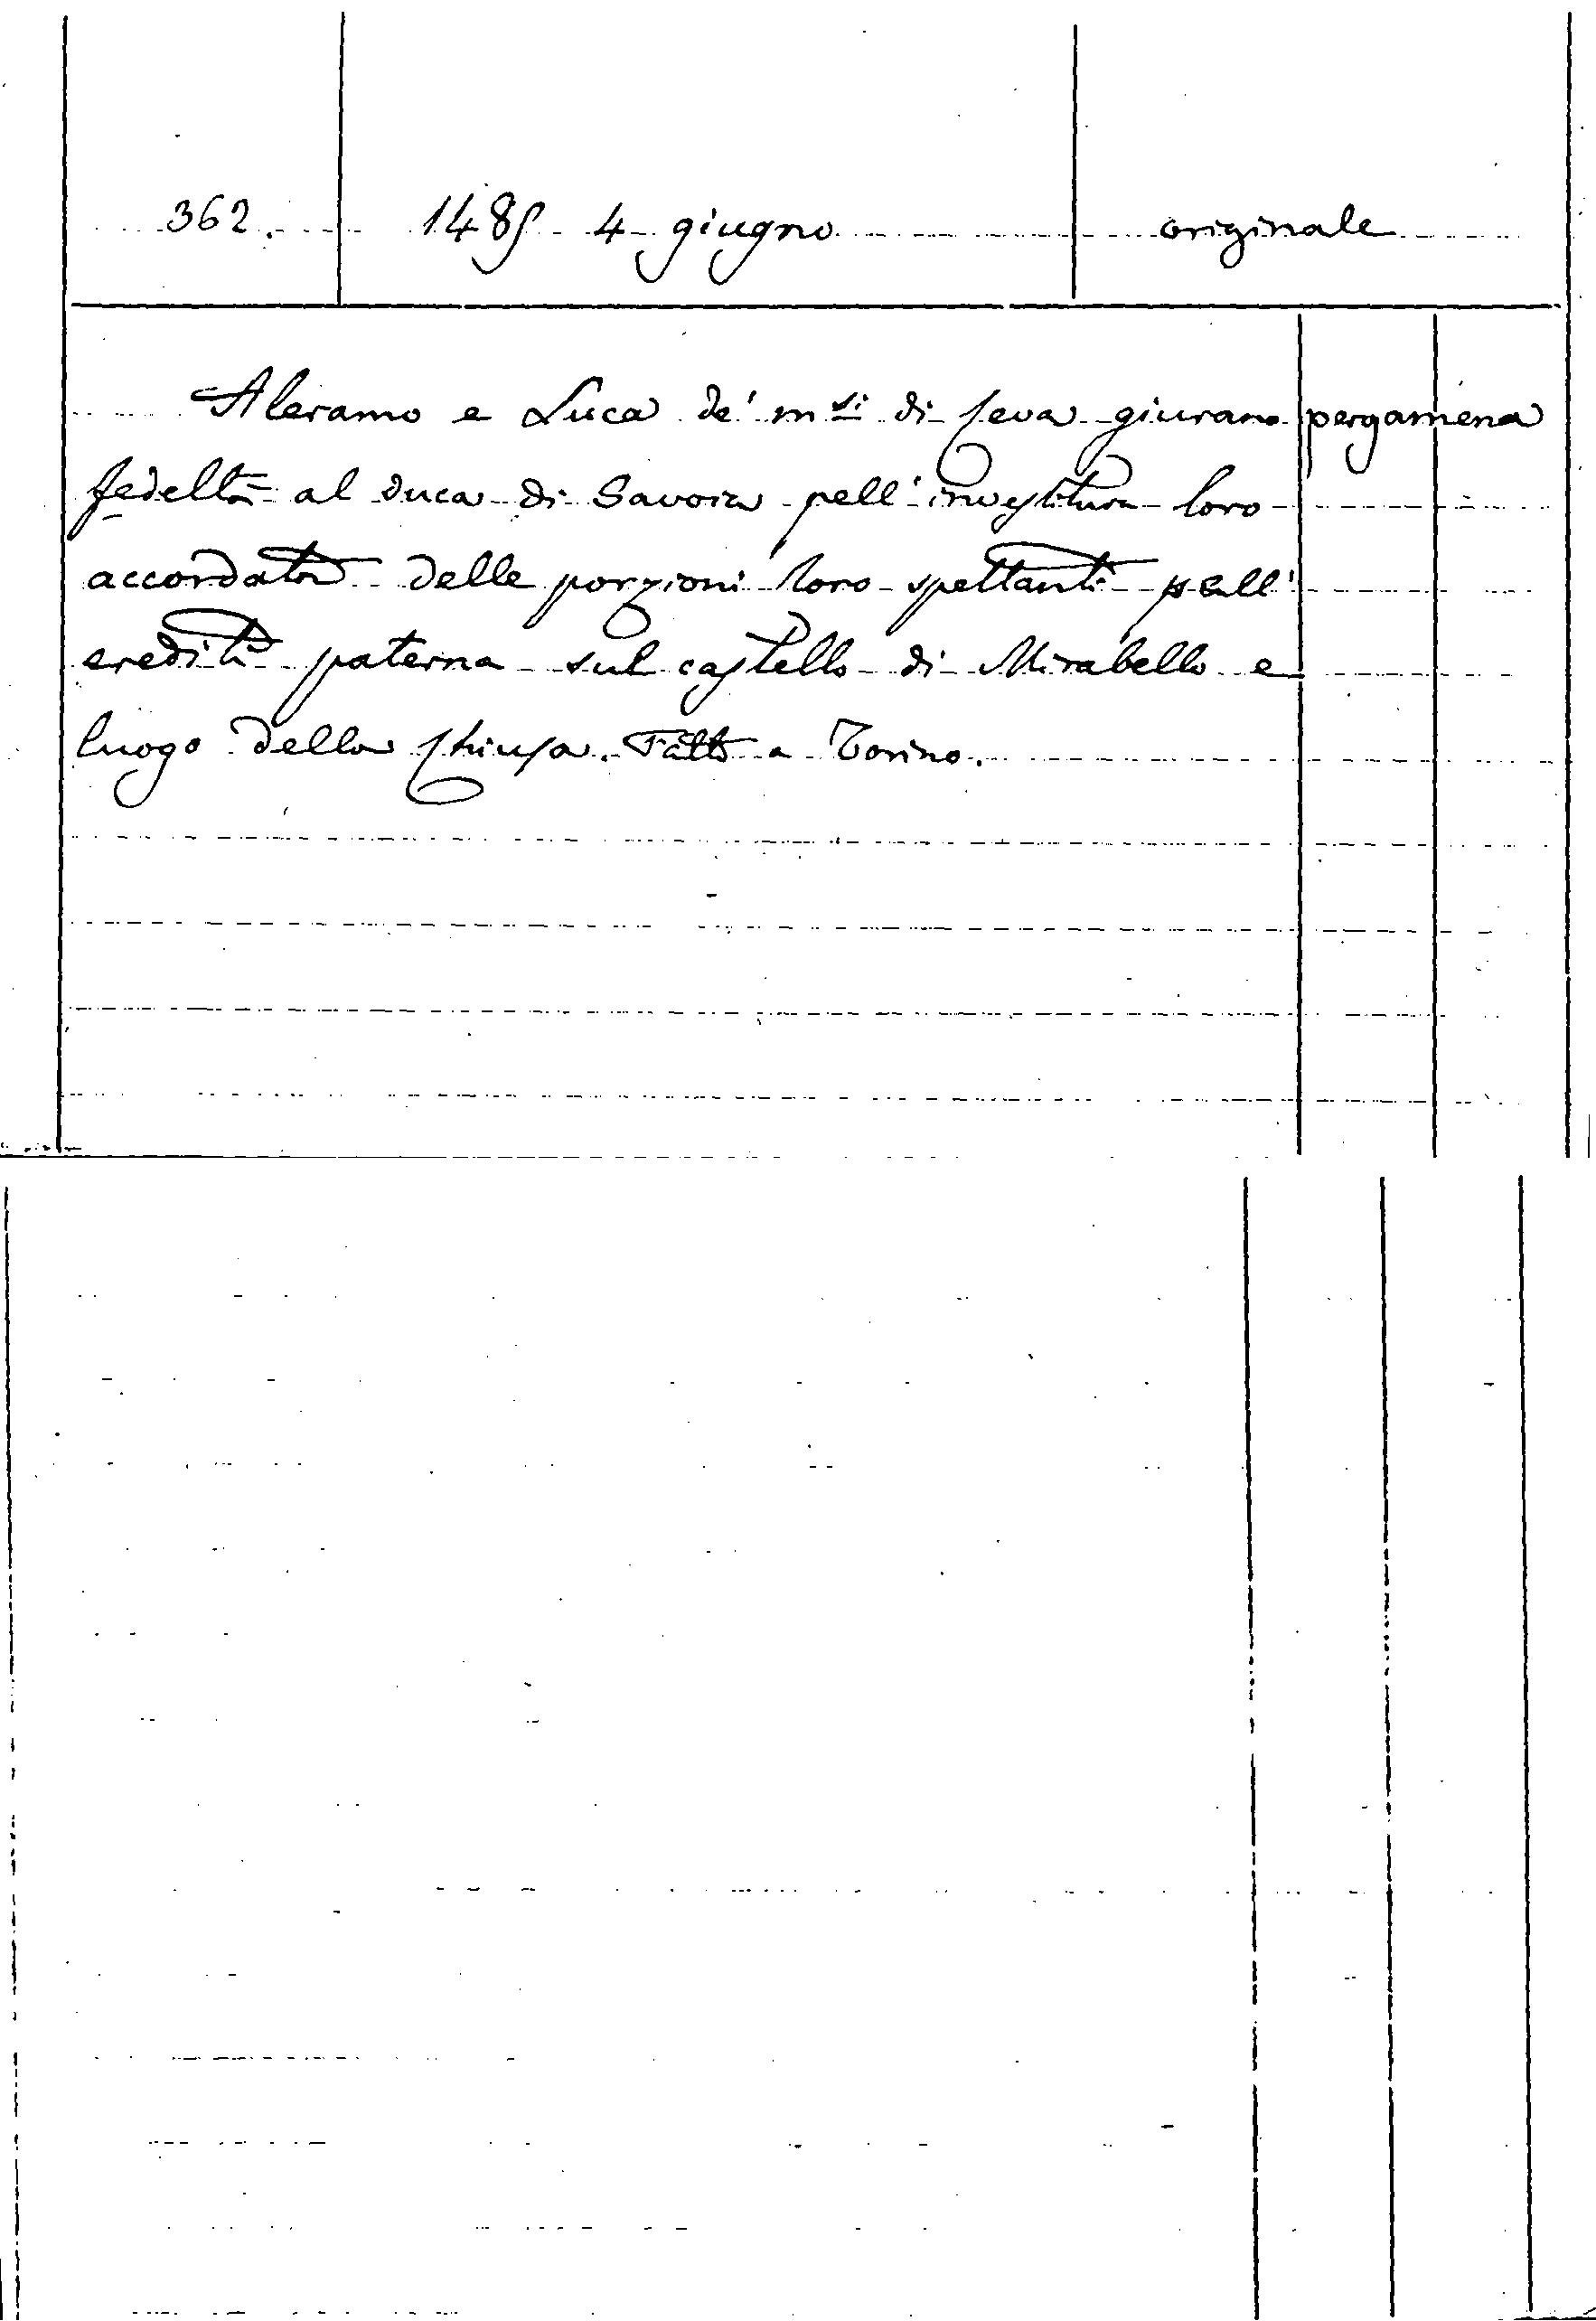 362. 1485 4 giugno originale
Aleramo e Luca de' m.si di Ceva giurano pergamena
fedeltà al duca di Savoia pell' investitura loro
accordata delle porzioni loro spettanti pell'
eredità paterna sul castello di Mirabello e
luogo della Chiusa. Fatto a Torino.